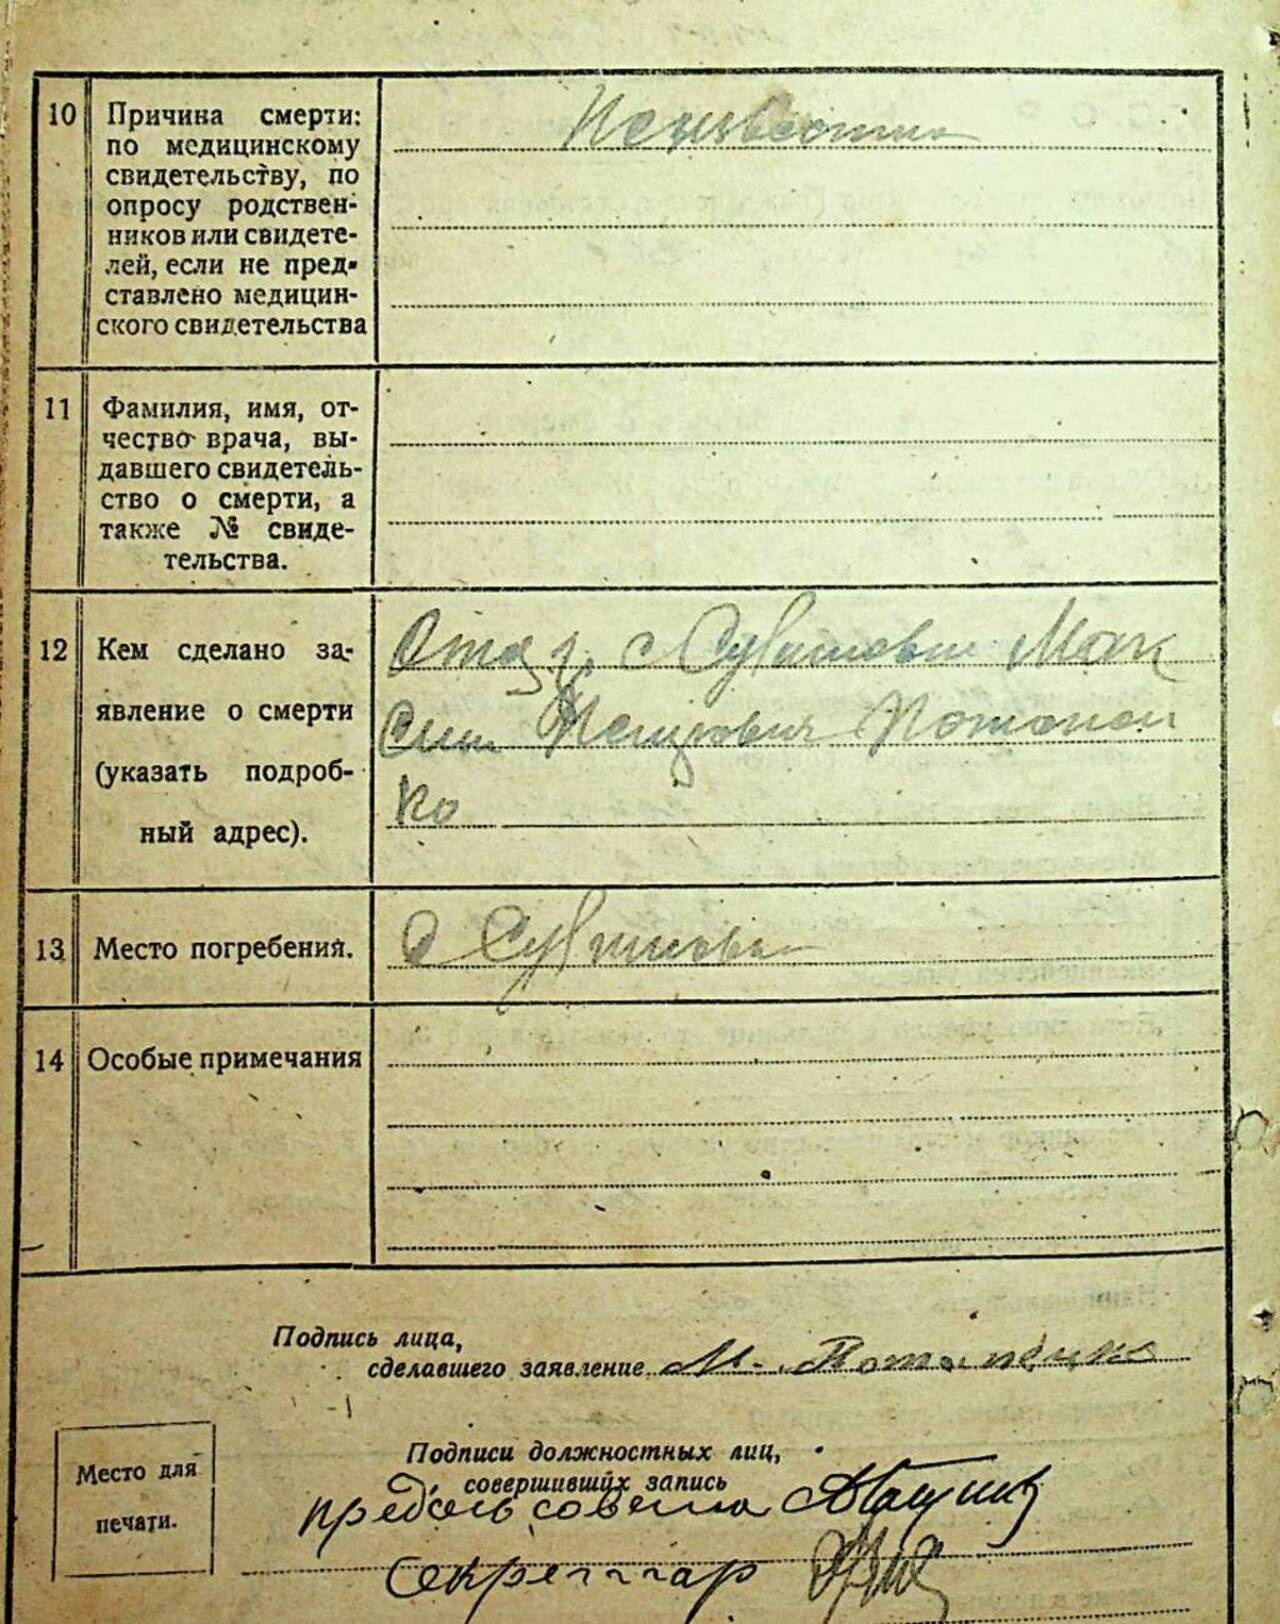 10 Причина смерти: Неизвестна
по медицинскому
свидетельству, по
опросу родствен-
ников или свидете-
лей, если не пред-
ставлено медицин-
ского свидетельства
11 Фамилия, имя, от-
чество врача, вы-
давшего свидетель-
ство о смерти, а
также № свиде-
тельства.
12 Кем сделано за-
явление о смерти
(указать подроб-
ный адрес).
с Мак
сим Потапен
ко
13 Место погребения. с
14 Особые примечания
Подпись лица,
сделавшего заявление М. Потапенко
Подписи должностных лиц,
совершивших запись
совета
Секретар
Место для
печати.